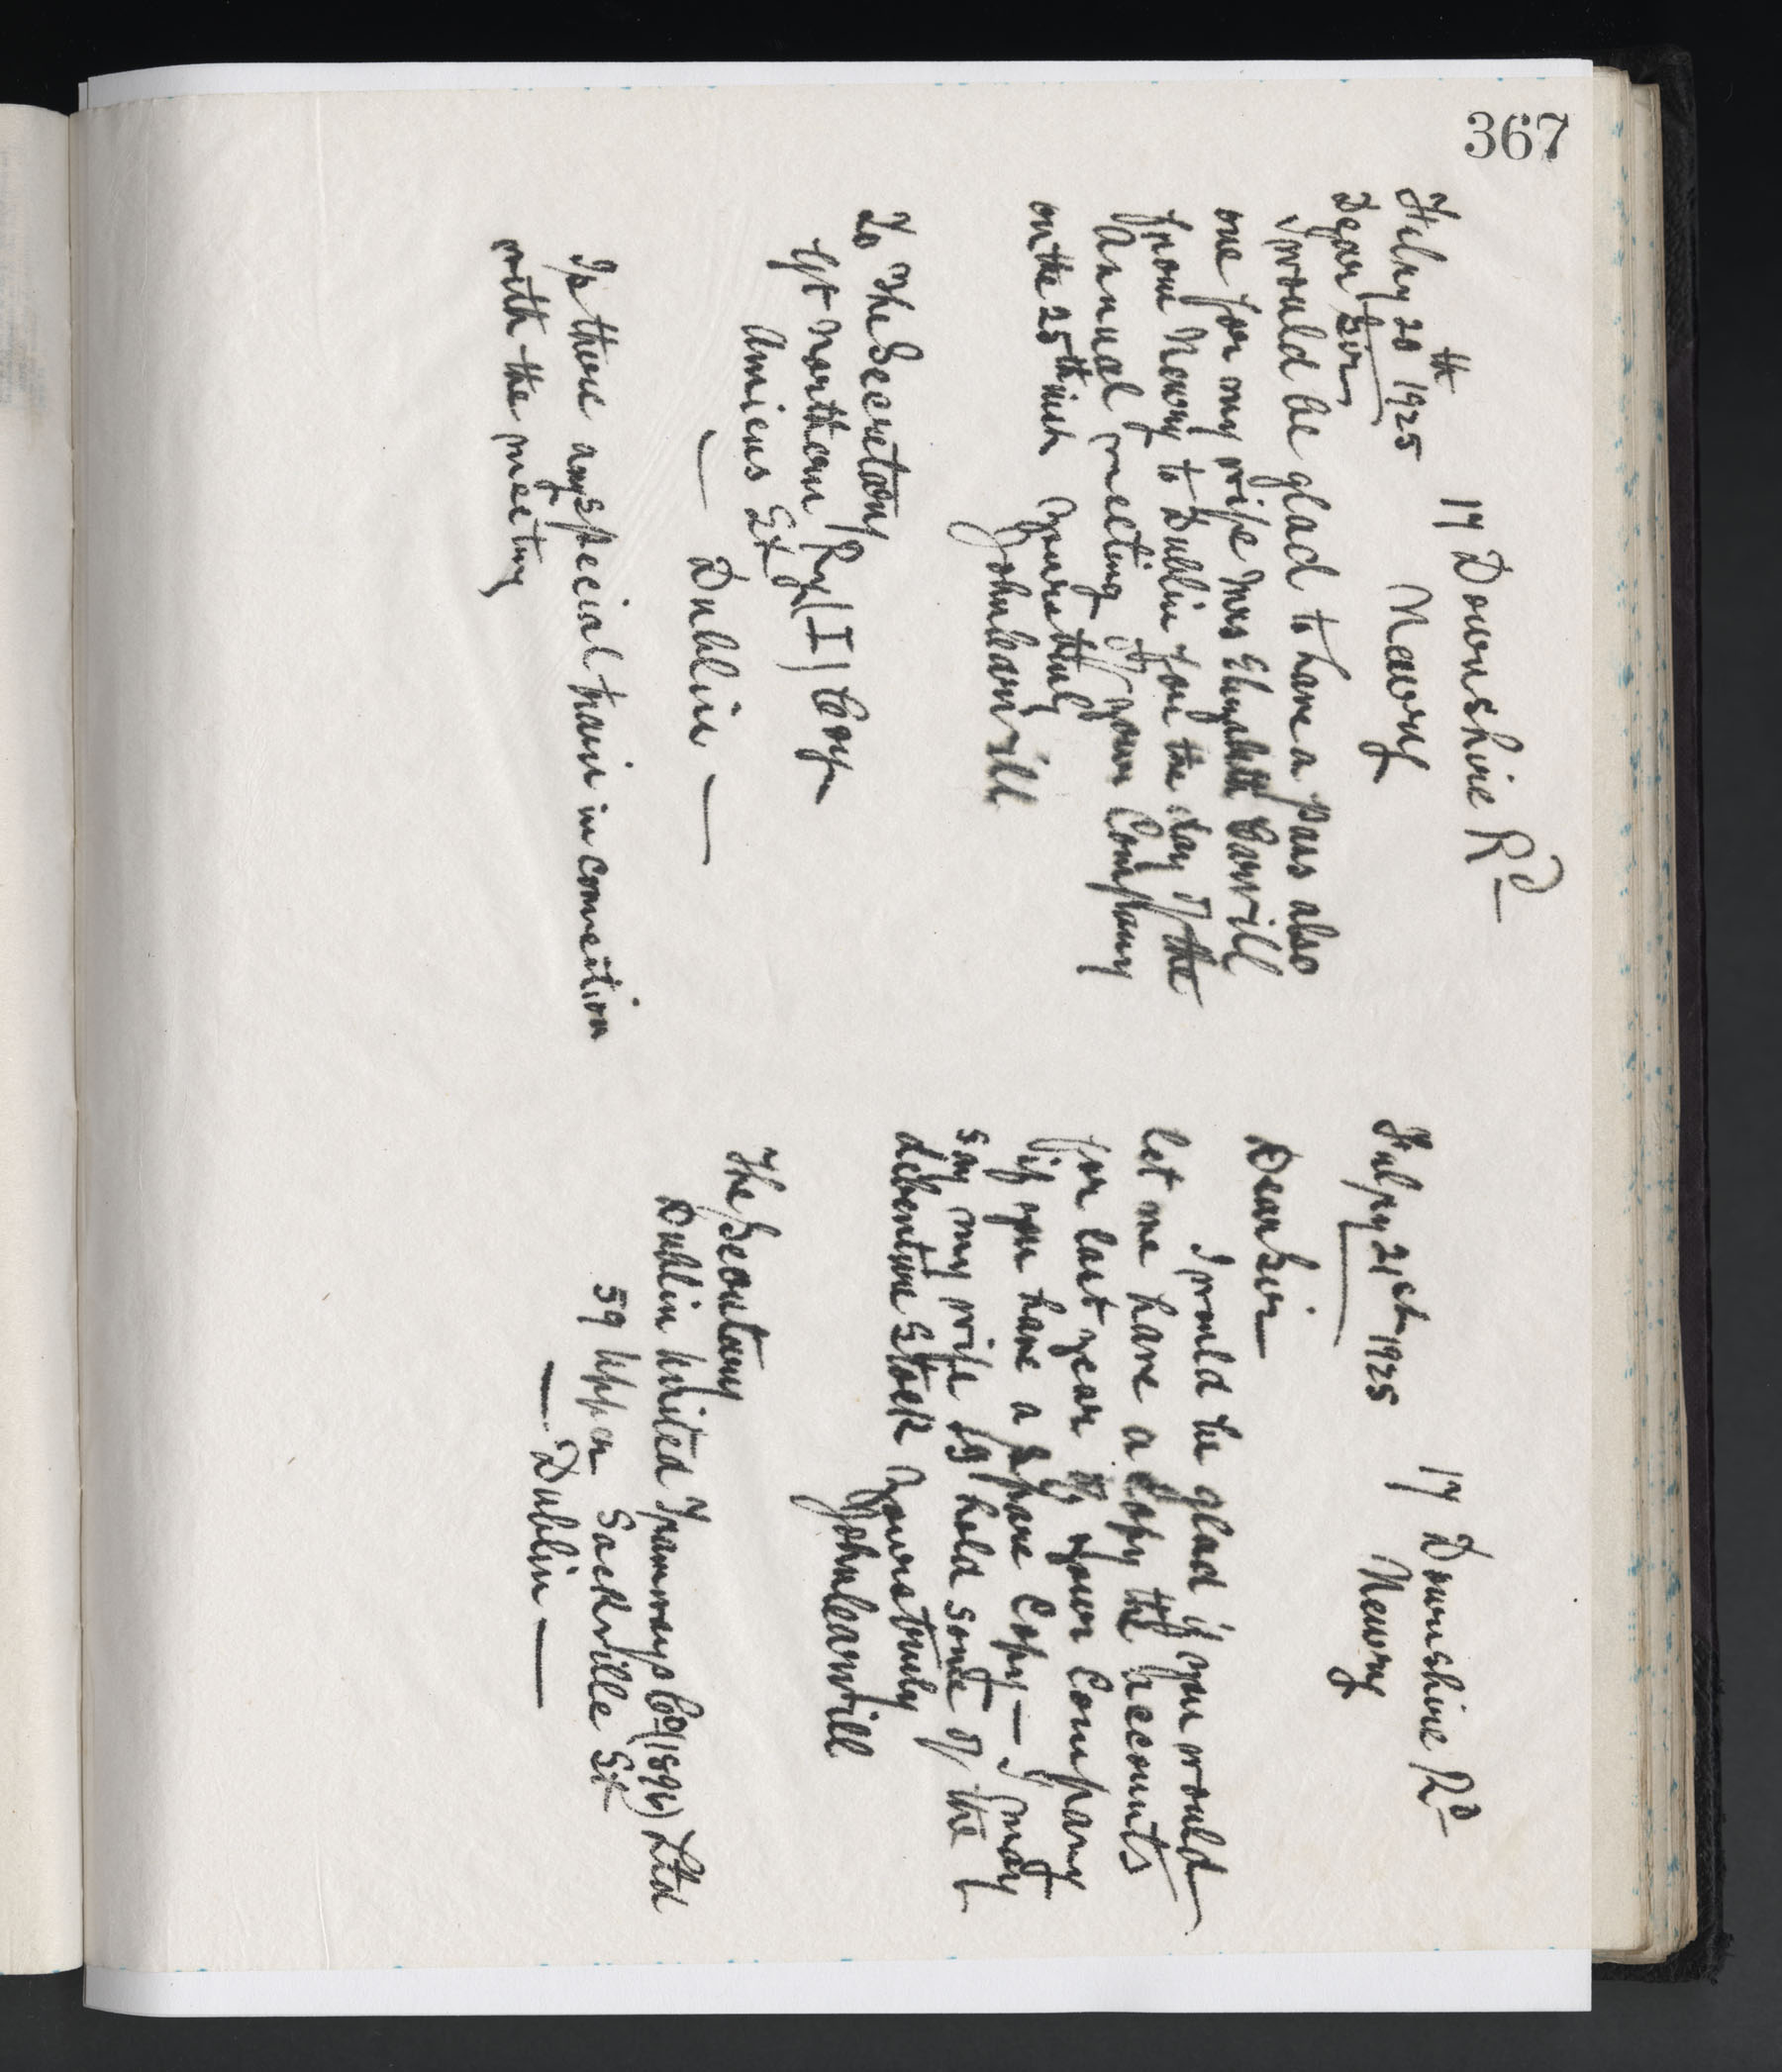 367
17 Downshire Rd
Newry
Febry 20th 1925
Dear Sir
I would be glad to have a pass also
one for my wife Mrs Elizabeth Carvill
from Newry to Dublin for the day of the
Annual meeting of your Company
on the 25th inst Yours truly
John Carvill
To The Secretary
Gt Northern Ry (I) Coy
Amiens St
— Dublin —
Is there any special train in connection
with the meeting
17 Downshire Rd
Newry
Febry 21st 1925
Dear Sir
I would be glad if you would
let me have a copy of the accounts
for last year of your Company
if you have a spare Copy — I may
say my wife & I hold some of the
debenture stock Yours truly
John Carvill
The Secretary
Dublin United Tramways Co (1896) Ltd
59 Upper Sackville St
— Dublin —